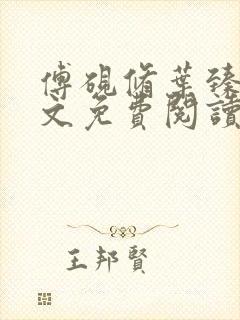 傅硯脩葉臻
文免費閱讀
王邦賢